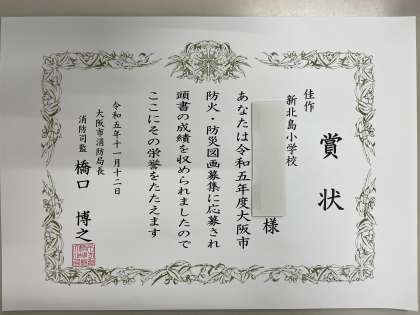 賞状
佳作
新北島小学校
様
あなたは令和五年度大阪市
防火・防災図画募集に応募され
頭書の成績を収められましたので
ここにその栄誉をたたえます
令和五年十一月十二日
大阪市消防局長
消防司監 橋口 博之